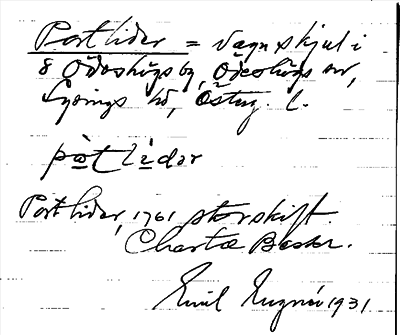 Portlider = vagnskjul i
8 Ödeshögs by, Ödeshögs sn,
Lysings hd, Österg. l.
pòtlìdər
Portlider, 1761 storskift.
Charta Beskr.
Emil 1931